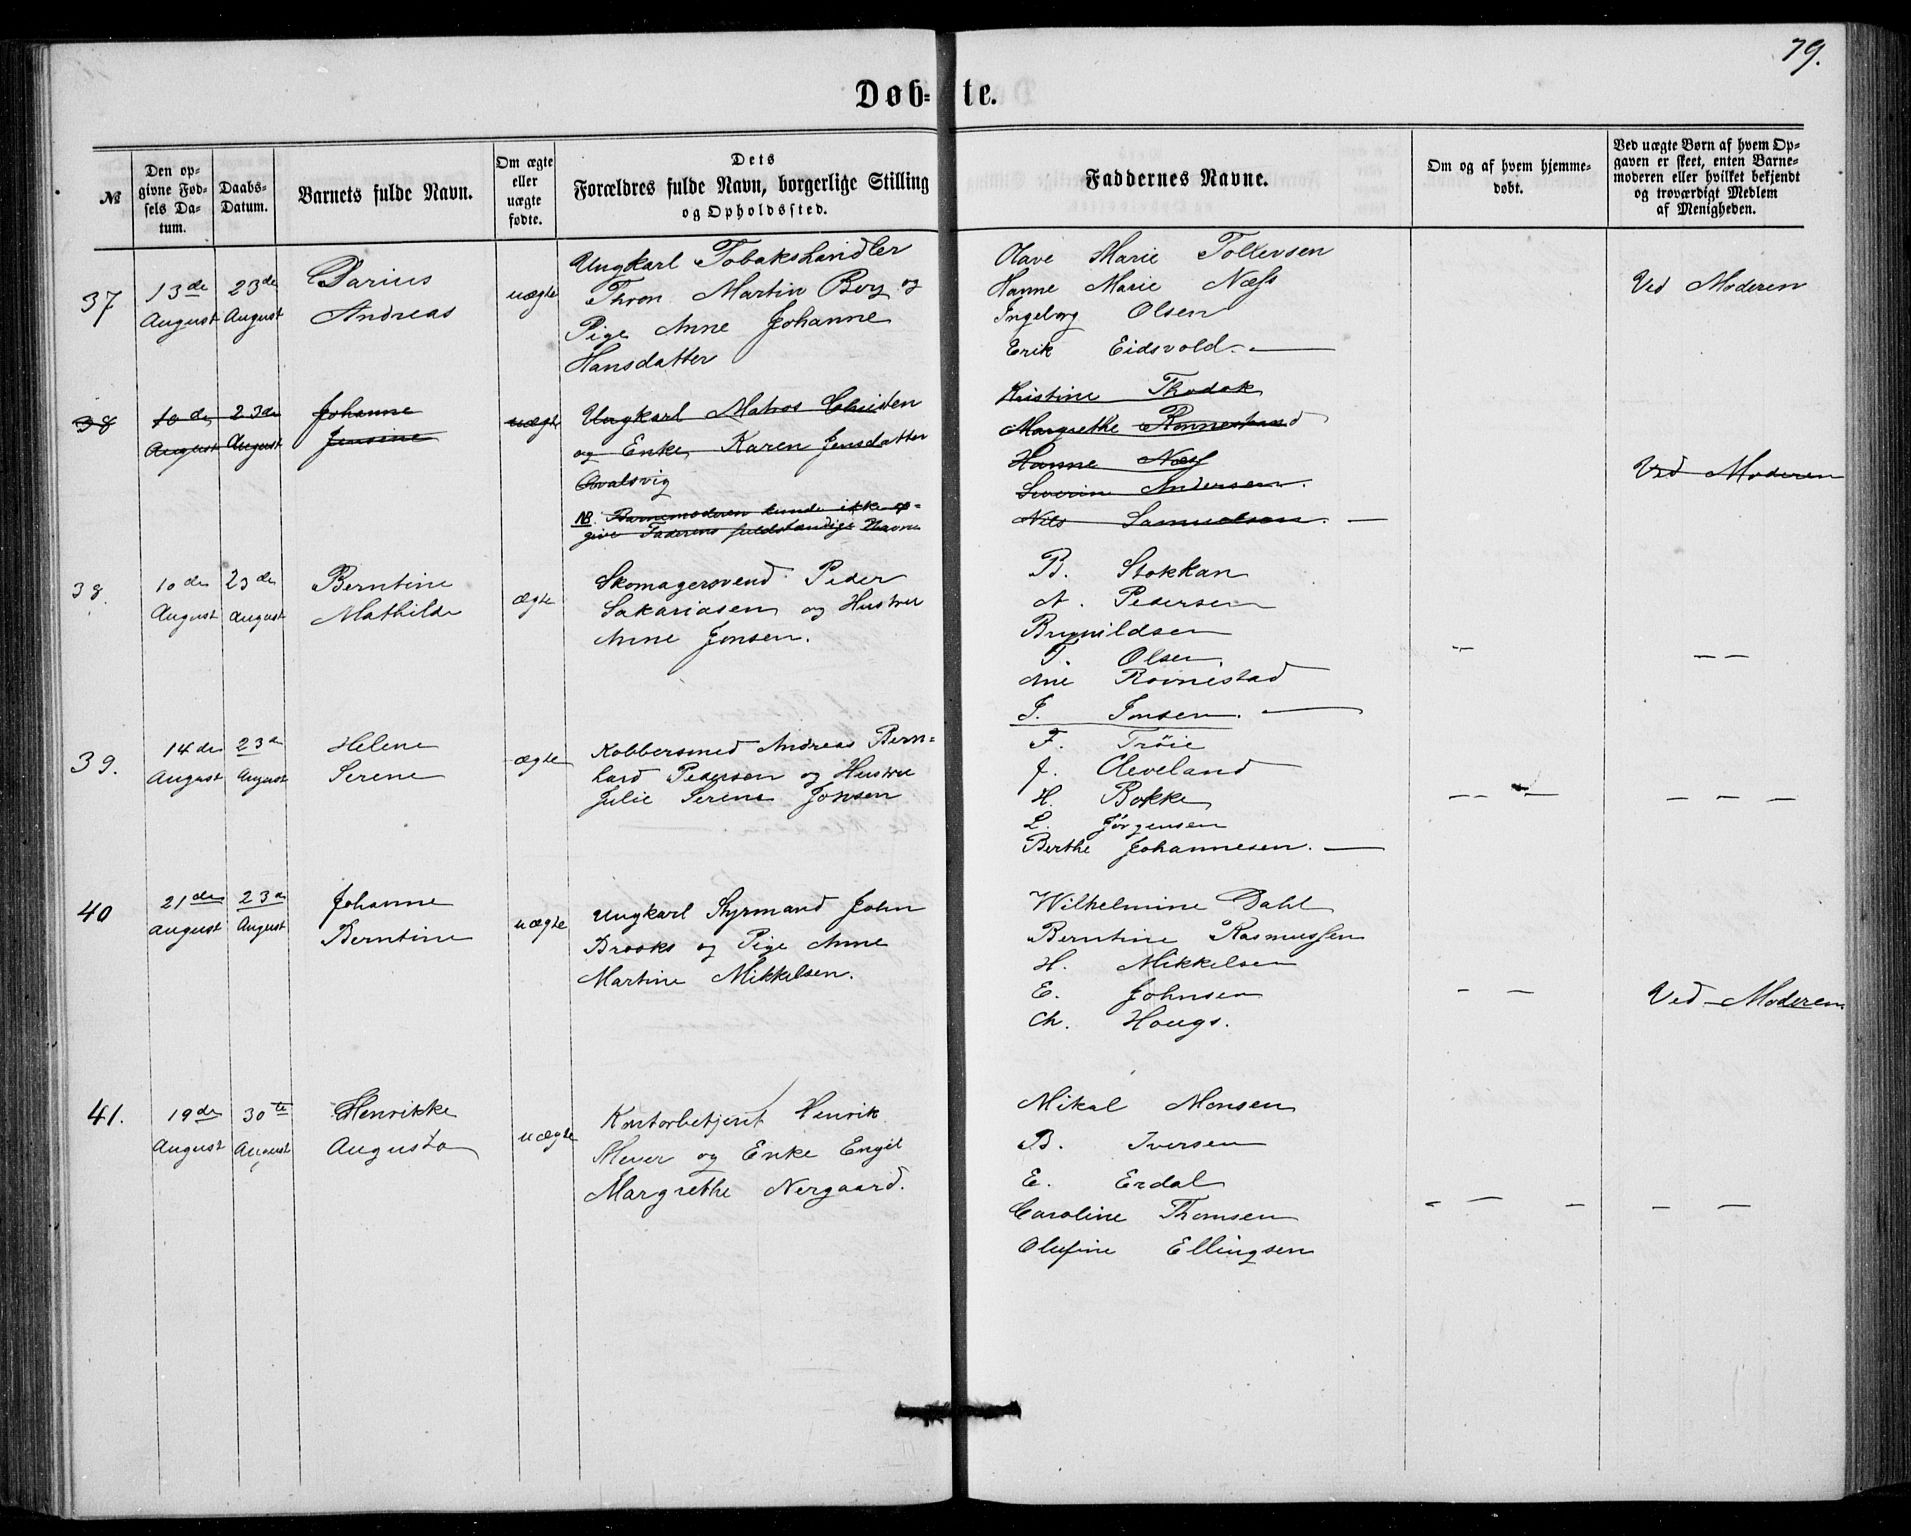 79.
Døb-te.
№
Den op-
givne Fød-
sels Da-
tum.
Daabs-
Datum.
Barnets fulde Navn.
Om ægte
eller
uægte
fødte.
Dets
Forældres fulde Navn, borgerlige Stilling
og Opholdssted.
Faddernes Navne.
Om og af hvem hjemme-
døbt.
Ved uægte Børn af hvem Op-
gaven er skeet, enten Barne-
moderen eller hvilket bekjendt
og troværdigt Medlem
af Menigheden.
37
13de
August
23de
August
Darius
Andreas
uægte
Ungkarl Tobakshandler
Thron Martin Berg og
Pige Anne Johanne
Hansdatter
Olave Marie Tollevsen
Hanne Marie Næss
Ingeborg Olsen
Erik Eidsvold. —
Ved Moderen
38
10de
August
23de
August
Johanne
Jensine
uægte
Ungkarl Matros
og Enke Karen Jensdatter
Qvalsvig
NB. Barnemoderen kunde ikke op-
give Faderens fuldstændige Navn
Kristine
Margrethe Rønnestrand
Hanne Næss
Severin Andersen.
Nils Samuelsen. —
Ved Moderen
38.
10de
August
23de
August
Berntine
Mathilde
ægte
Skomagersvend Peder
Sakariasen og Hustru
Anne Jonsen.
B. Stokkan
N. Pedersen
Brynildsen
T. Olsen
Ane Rovnestad
J. Jonsen. —
—
— —
39.
14de
August
23de
August
Helene
Serene
ægte
Kobbersmed Andreas Bern-
hard Pedersen og Hustru
Julie Serene Jonsen
F. Trøie
J. Cleveland
H. Bokke
L. Jørgensen
Berthe Johannesen. —
— — —
— — —
40
21de
August
23de
August
Johanne
Berntine
uægte
Ungkarl Styrmand John
Brooks og Pige Anne
Martine Mikkelsen.
Wilhelmine Dahl
Berntine Rasmussen
H. Mikkelsen
E. Johnsen
Ch. Hougs.
— —
Ved Moderen.
41.
19de
August
30te
August
Henrikke
Augusta
uægte
Kontorbetjent Henrik
Meyer og Enke Engel
Margrethe Nergaard.
Mikal Monsen
B. Iversen
E. Erdal
Caroline Thomsen
Olufine Ellingsen
— — —
— —